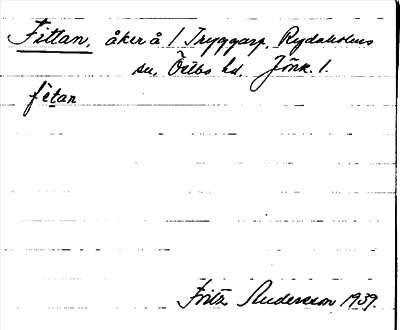 Fittan, åker å 1 Tryggarp, Rydaholms
sn, Östbo hd. Jönk. l.
fetan
Fritz Andersson 1939.